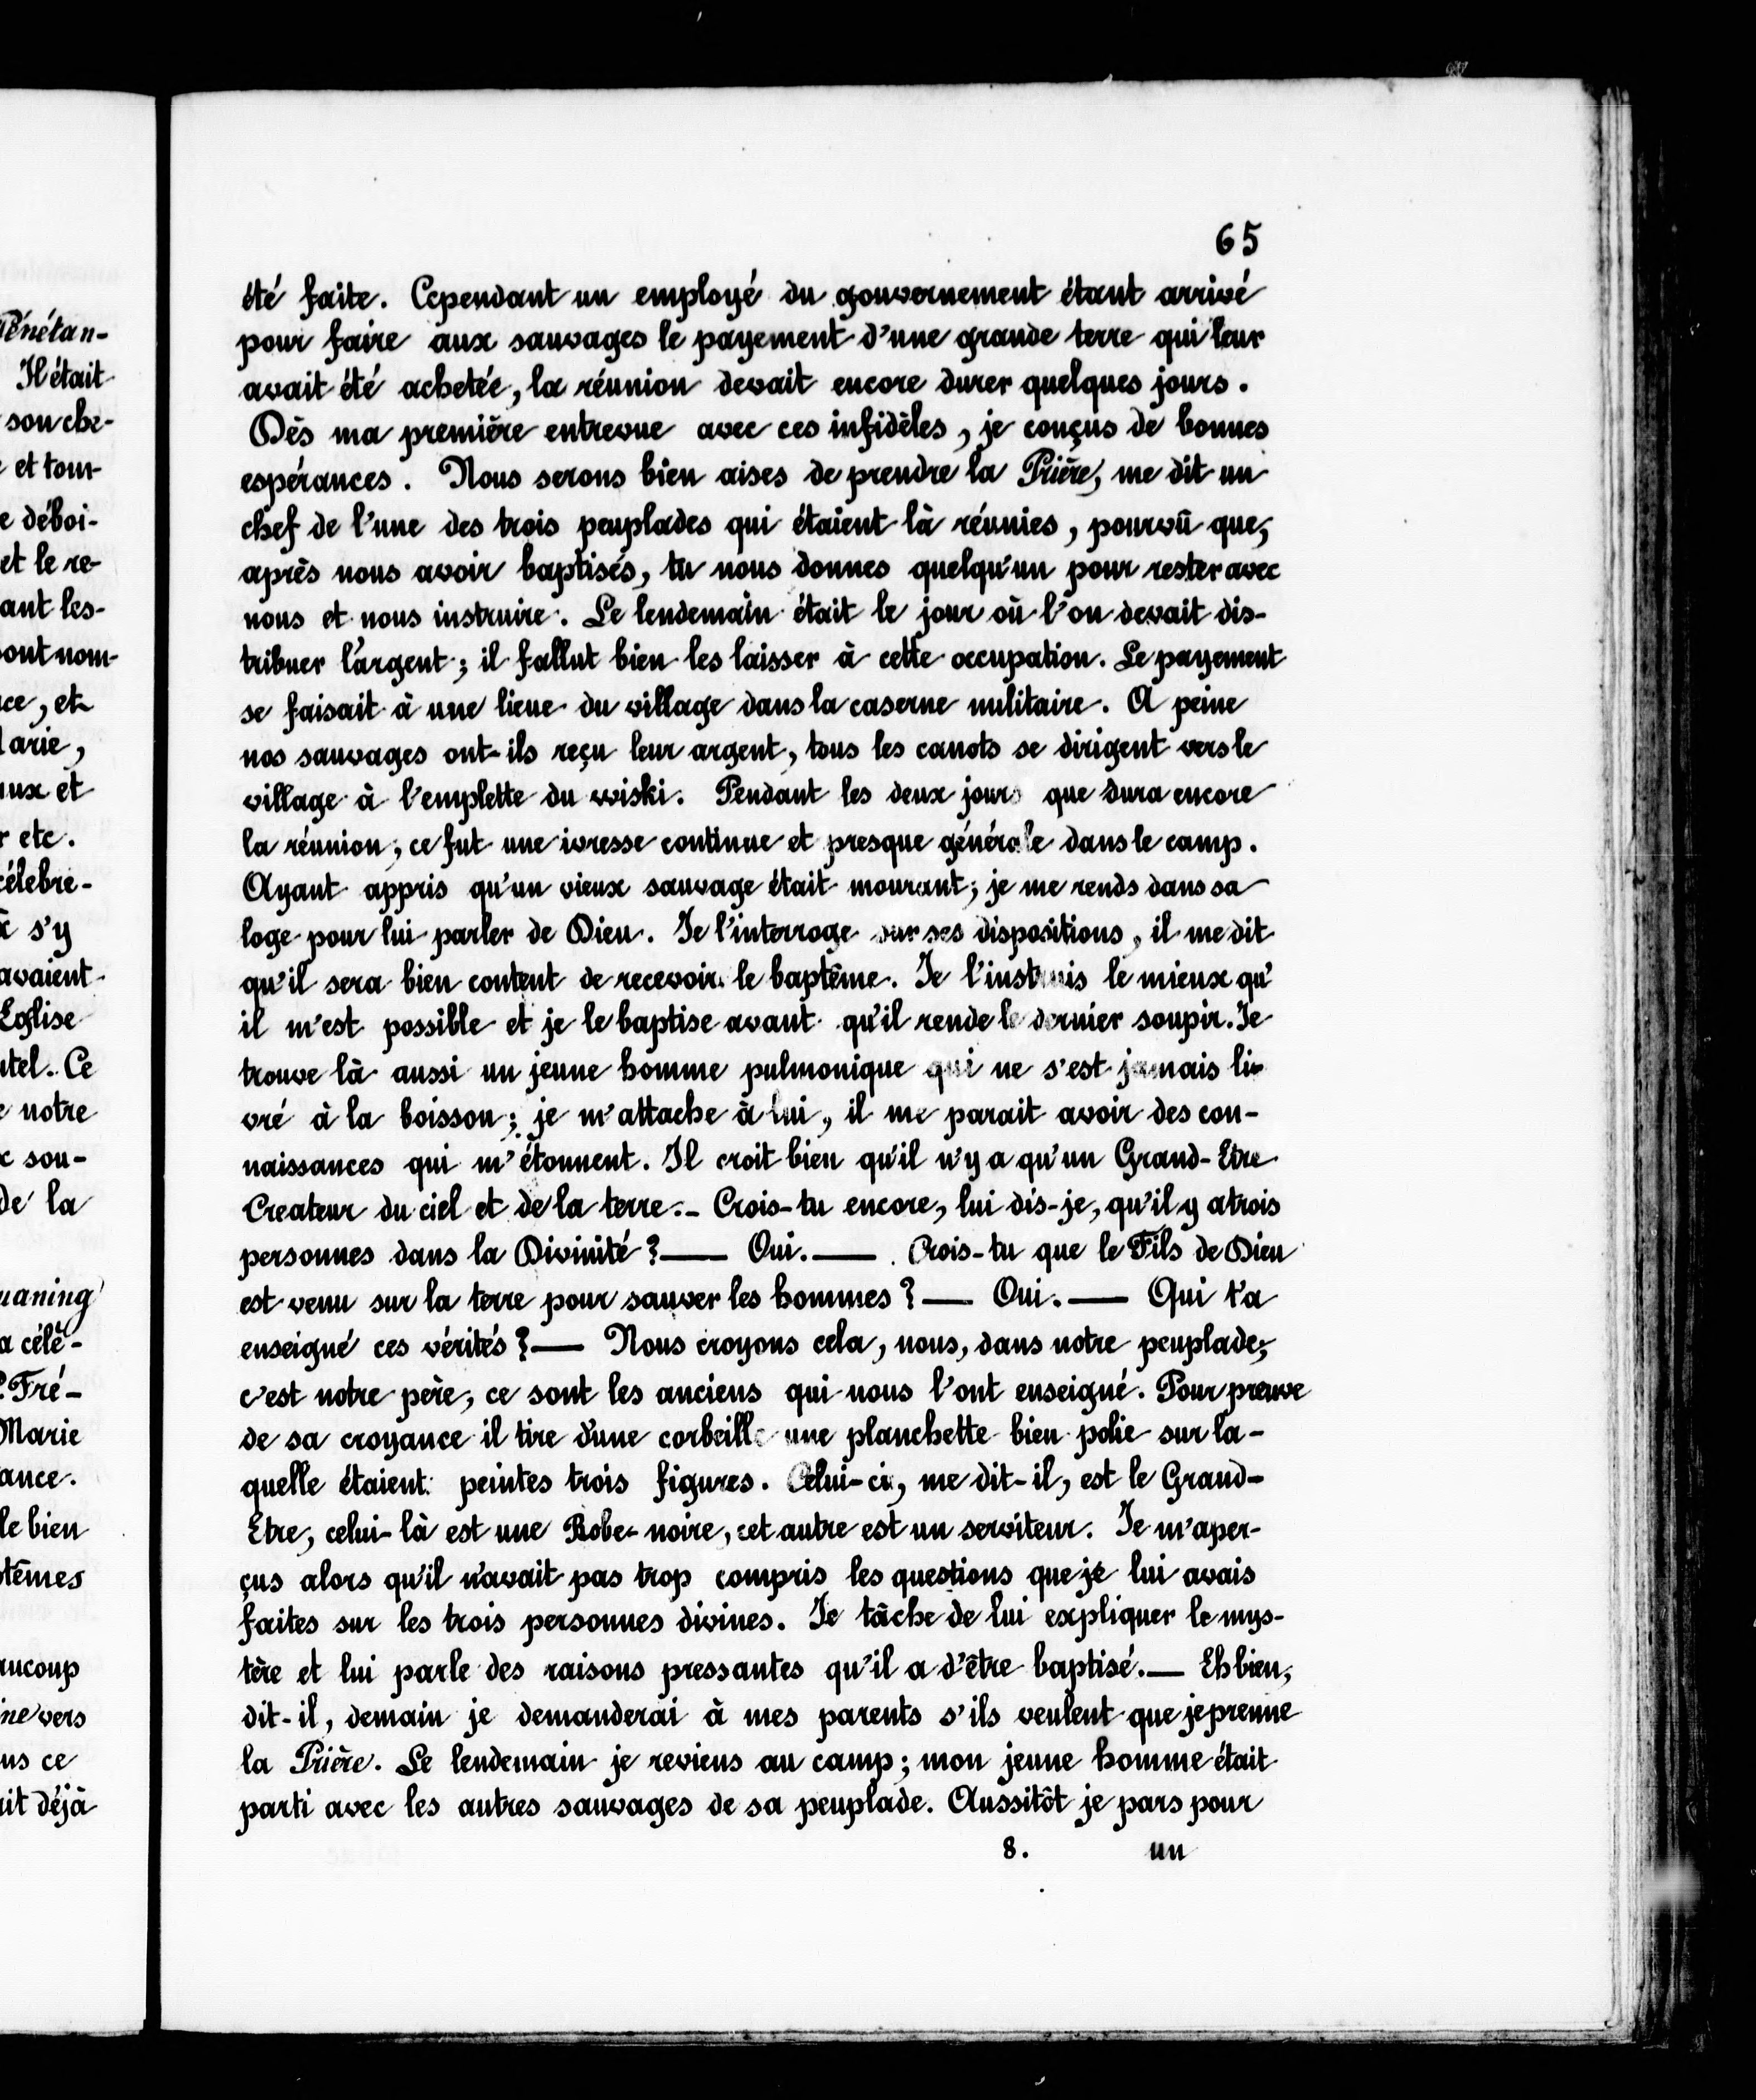 Pénétan-
Il était
son che-
et tour
e déboi-
et le re-
ant les-
ont nom-
ce, et
arie,
aux et
r etc.
célebre-
s'y
avaient
Eglise
utel. Ce
e notre
x sou-
de la
uaning
a célè-
P. Fré-
Marie
ance.
le bien
ptêmes
aucoup
ne vers
us ce
ait déjà
65
été faite. Cependant un employé du gouvernement étant arrivé
pour faire aux sauvages le payement d'une grande terre qui leur
avait été achetée, la réunion devait encore durer quelques jours.
Dès ma première entrevue avec ces infidèles, je conçus de bonnes
espérances. Nous serons bien aises de prendre la Prière, me dit un
chef de l'une des trois peuplades qui étaient là réunies, pourvû que,
après nous avoir baptisés, tu nous donnes quelqu'un pour rester avec
nous et nous instruire. Le lendemain était le jour où l'on devait dis-
tribuer l'argent; il fallut bien les laisser à cette occupation. Le payement
se faisait à une lieue du village dans la caserne militaire. A peine
nos sauvages ont-ils reçu leur argent, tous les canots se dirigent vers le
village à l'emplette du wiski. Pendant les deux jours que dura encore
la réunion, ce fut une ivresse continue et presque générale dans le camp.
Ayant appris qu'un vieux sauvage était mourant; je me rends dans sa
loge pour lui parler de Dieu. Je l'interroge sur ses dispositions, il me dit
qu'il sera bien content de recevoir le baptême. Je l'instruis le mieux qu'
il m'est possible et je le baptise avant qu'il rende le dernier soupir. Je
trouve là aussi un jeune homme pulmonique qui ne s'est jamais li-
vré à la boisson; je m'attache à lui, il me parait avoir des con-
naissances qui m'étonnent. Il croit bien qu'il n'y a qu'un Grand-Etre
Createur du ciel et de la terre.- Crois-tu encore, lui dis-je, qu'il y a trois
personnes dans la Divinité ?— Oui.— Crois-tu que le Fils de Dieu
est venu sur la terre pour sauver les hommes ?— Oui.— Qui t'a
enseigné ces vérités ?— Nous croyons cela, nous, dans notre peuplade;
c'est notre père, ce sont les anciens qui nous l'ont enseigné. Pour preuve
de sa croyance il tire d'une corbeille une planchette bien polie sur la-
quelle étaient peintes trois figures. Celui-ci, me dit-il, est le Grand-
Etre, celui-là est une Robe-noire, cet autre est un serviteur. Je m'aper-
çus alors qu'il n'avait pas trop compris les questions que je lui avais
faites sur les trois personnes divines. Je tâche de lui expliquer le mys-
tère et lui parle des raisons pressantes qu'il a d'être baptisé.— Eh bien,
dit-il, demain je demanderai à mes parents s'ils veulent que je prenne
la Prière. Le lendemain je reviens au camp; mon jeune homme était
parti avec les autres sauvages de sa peuplade. Aussitôt je pars pour
8. un